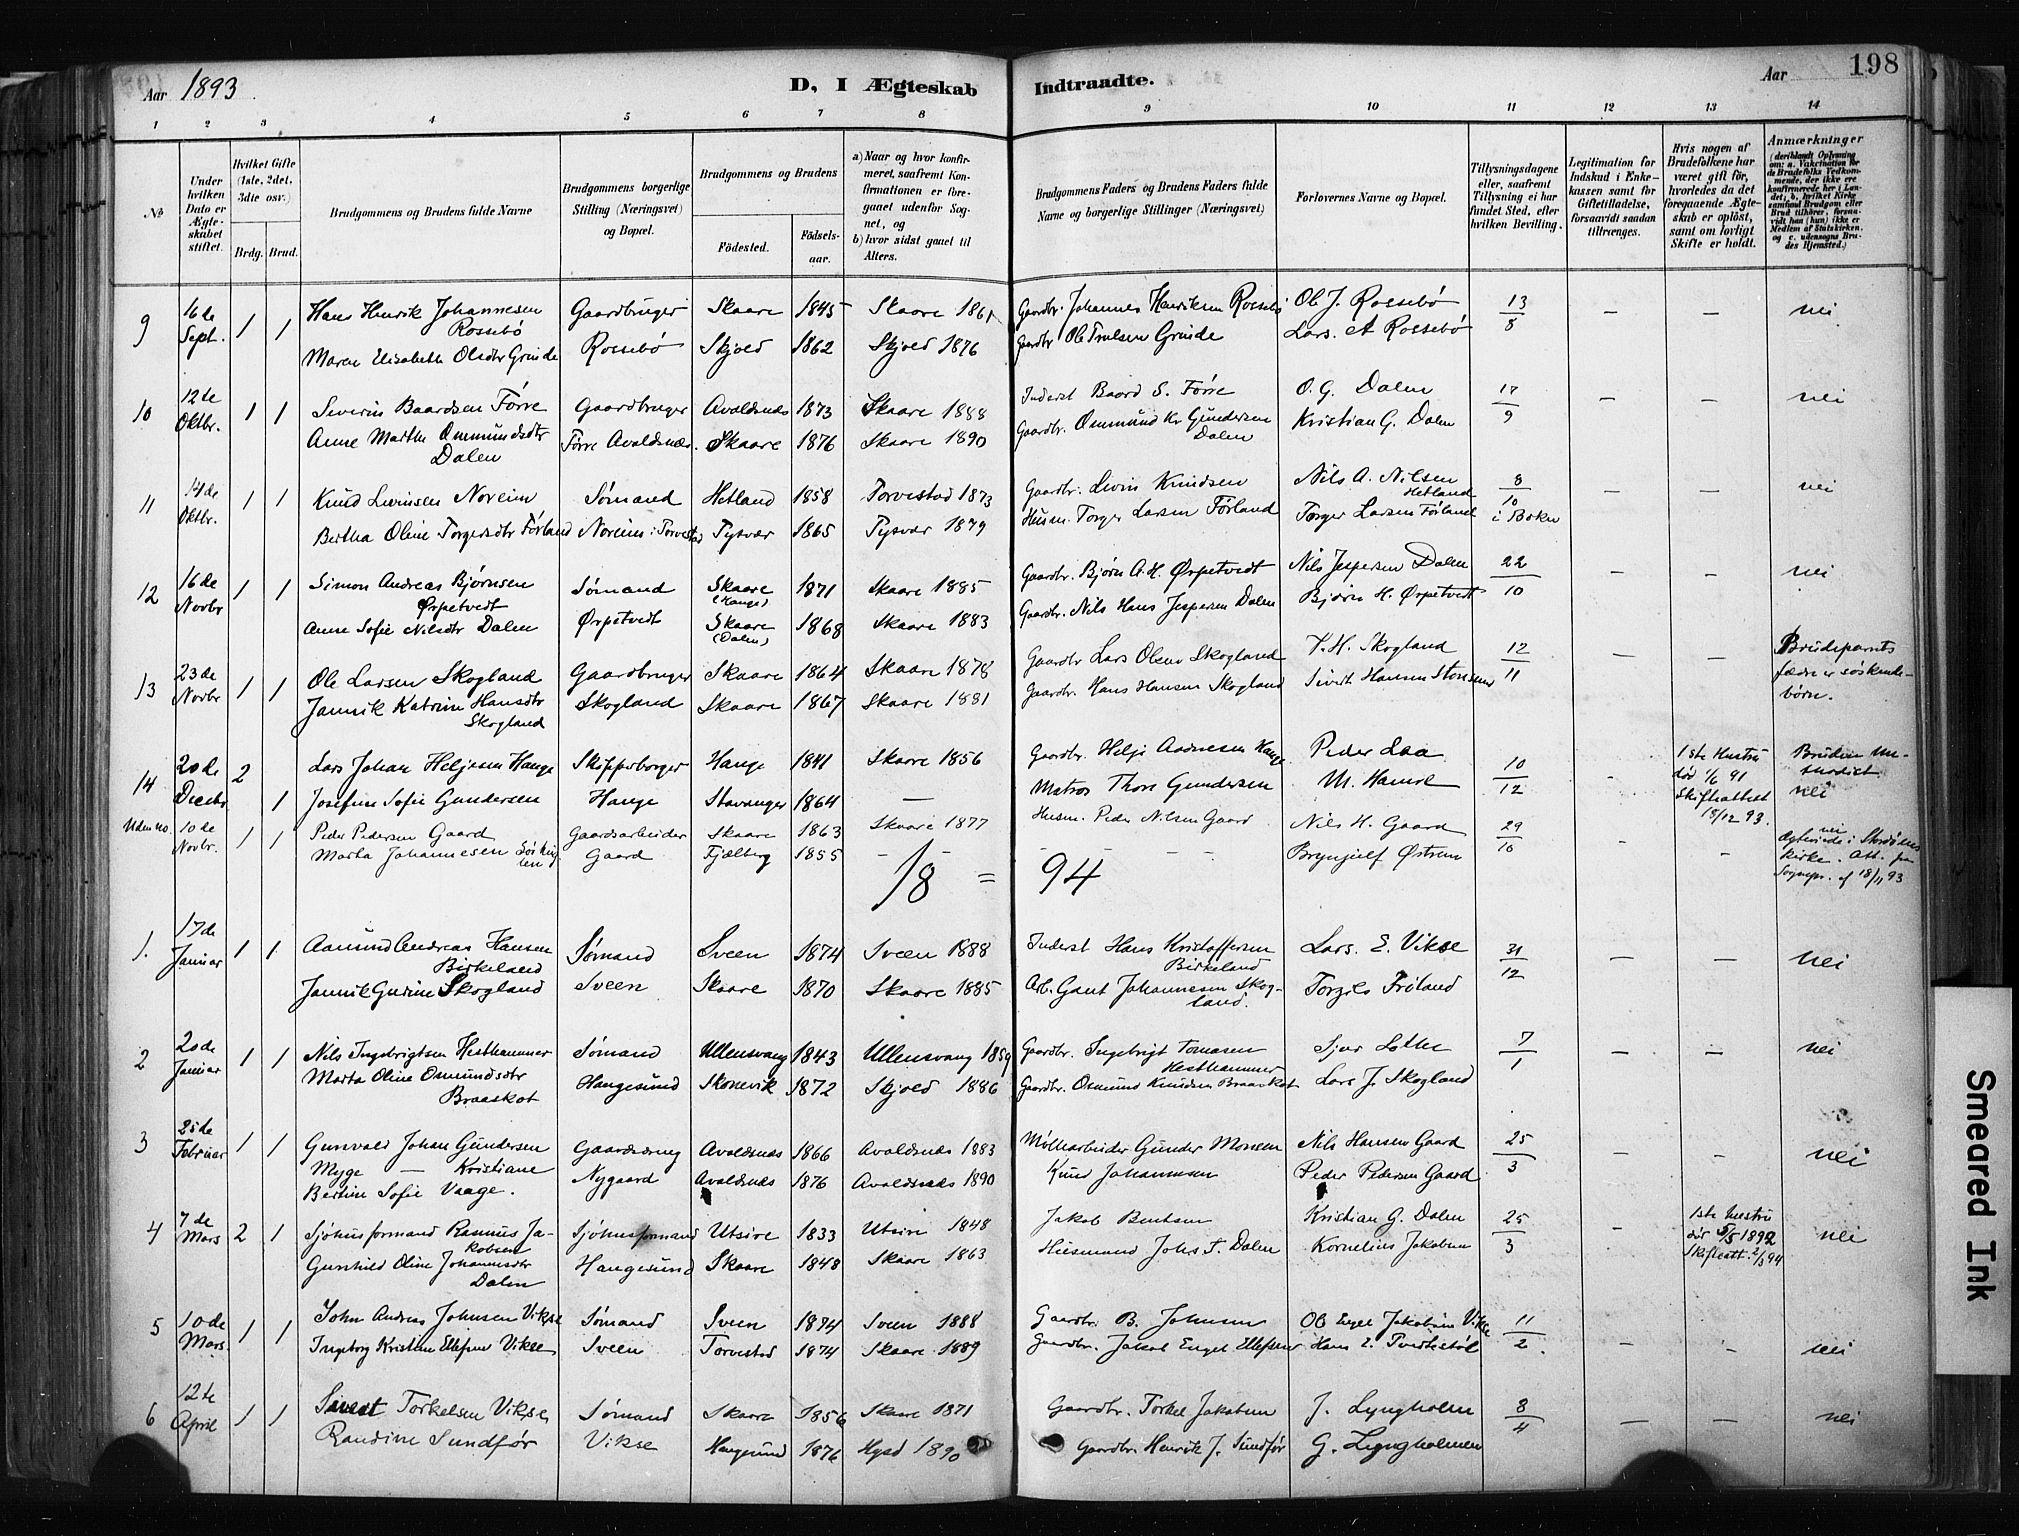 Aar 1893.
D, I Ægteskab
Indtraadte.
Aar
198
1 2 3 4 5 6 7 8 9 10 11 12 13 14
No
Under hvilken Dato er Ægteskabet stiftet.
Hvilket Gifte (1ste, 2det, 3dte osv.)
Brdg. Brud.
Brudgommens og Brudens fulde Navne
Brudgommens borgerlige Stilling (Næringsvei) og Bopæl.
Brudgommens og Brudens
Födested.
Födselsaar.
a) Naar og hvor konfirmeret, saafremt Konfirmationen er foregaaet udenfor Sognet, og
b) hvor sidst gaaet til Alters.
Brudgommens Faders og Brudens Faders fulde Navne og borgerlige Stillinger (Næringsvei)
Forlovernes Navne og Bopæl.
Tillysningsdagene eller, saafremt Tillysning ei har fundet Sted, efter hvilken Bevilling.
Legitimation for Indskud i Enkekassen samt for Giftetilladelse, forsaavidt saadan tiltrænges.
Hvis nogen af Brudefolkene har været gift før, hvorledes da det foregaaende Ægteskab er oplöst, samt om lovligt Skifte er holdt.
Anmærkninger
(deriblandt Oplysning om: a. Vakcination for de Brudefolks Vedkommende, der ikke ere konfirmerede her i Landet; b. hvilket Kirkesamfund Brudgom eller Brud tilhörer, forsaavidt han (hun) ikke er Medlem af Statskirken. og c. udensogns Brudes Hjemsted.)
9 16de Sept. 1 1 Hans Henrik Johannesen Rossebø Gaardbruger Skaare 1845 Skaare 1861 Gaardbr. Johannes Henriksen Rossebø Ole J. Rossebø 13/8 – – nei
Maren Elisabeth Olsdtr Grinde Rossebø Skjold 1862 Skjold 1876 Gaardbr Ole Trulsen Grinde Lars. A Rossebø
10 12te Oktbr. 1 1 Severin Baardsen Førre Gaardbruger Avaldsnæs 1873 Skaare 1888 Inderst Baard S. Førre O. G. Dalen 17/9 – – nei
Anne Marthe Osmundsdtr Dalen Førre Avaldsnæs. Skaare 1876 Skaare 1890 Gaardbr. Osmund Kr Gundersen Dalen Kristian G. Dalen
11 14de Oktbr. 1 1 Knud Levinsen Noreim Sømand Hetland 1858 Torvestad 1873 Gaardbr. Levin Knudsen Nils A. Nilsen Hetland 8/10 i Bokn – – nei
Bertha Oline Torgersdtr Førland Noreim i Torvestad Tysvær 1865 Tysvær 1879 Husm. Torger Larsen Førland Torger Larsen Førland
12 16de Novbr 1 1 Simon Andreas Bjørnsen Ørpetvedt Sømand Skaare (Hauge) 1871 Skaare 1885 Gaardbr. Bjørn A. H. Ørpetvedt Nils Jespersen Dalen 22/10 – – nei
Anne Sofie Nilsdtr Dalen Ørpetvedt Skaare (Dalen) 1868 Skaare 1883 Gaardbr. Nils Hans Jespersen Dalen Bjørn H. Ørpetvedt
13 23de Novbr 1 1 Ole Larsen Skogland Gaardbruger Skaare 1864 Skaare 1878 Gaardbr Lars Olsen Skogland H. Skogland 12/11 – – Brudeparrets fædre er søskendebørn.
Jannik Katrine Hansdtr Skogland Skogland Skaare 1867 Skaare 1881 Gaardbr. Hans Hansen Skogland Sivert Hansen
14 20de Decbr 2 1 Lars Johan Heljesen Hauge Skipsborger Hauge 1841 Skaare 1856 Gaardbr. Helje Aadnesen Hauge Peder Laa 10/12 - 1ste Hustru død 1/6 91 Skifteattest 15/12 93. Bruden methodist nei
Josefine Sofie Gundersen Hauge Stavanger 1864 – Matros Thore Gundersen M. Hamre
Uden no. 10de Novbr. 1 1 Peder Pedersen Gaard Gaardsarbeider Skaare 1863 Skaare 1877 Husm. Peder Nilsen Gaard Nils H. Gaard 29/10 - - nei Ægteviede i Skudenes Kirke. Att. fra Sognepr. af 18/11 93
Marta Johannesen Gaard Fjælberg 1855 – – Brynjulf Østrem
18 = 94
1. 17de Januar 1 1 Aamund Andreas Hansen Birkeland Sømand Sveen 1874 Sveen 1888 Inderst Hans Kristoffersen Birkeland Lars. E. Vikse 31/12 – – nei
Jannik Gurine Skogland Sveen Skaare 1870 Skaare 1885 Arb. Gaut Johannesen Skogland. Torgils Frøland
2 20de Januar 1 1 Nils Ingebrigtsen Hesthammer Sømand Ullensvang 1843 Ullensvang 1859 Gaardbr. Ingebrigt Tomasen Hesthammer Sjur Lothe 7/1 – – nei
Marta Oline Osmundsdtr Braaskot Haugesund Skonevik 1872 Skjold 1886 Gaardbr. Osmund Knudsen Braaskot Lars J. Skogland
3 25de Februar 1 1 Gunvald Johan Gundersen Myge Avaldsnæs 1866 Avaldsnæs 1883 Møllearbeider Gunder Monsen Nils Hansen Gaard 25/3 – – nei
Kristiane Bertine Sofie Vaage. Nygaard Avaldsnæs 1876 Avaldsnæs 1890 Knud Johannesen Peder Pedersen Gaard
4 7de Mars 2 1 Sjøhusformand Rasmus Jakobsen Sjøhusformand Utsire 1833 Utsire 1848 Jakob Bentsen Kristian G. Dalen 25/3 - 1ste hustru død 5/5 1892 Skifteatt. 2/3 94 nei
Gunhild Oline Johannesdtr Dalen Haugesund Skaare 1848 Skaare 1863 Husmand Johs T. Dalen Kornelius Jakobsen
5 10de Mars. 1 1 John Andreas Johnsen Vikse Sømand Sveen 1874 Sveen 1888 Gaardbr. B. Johnsen Ole Engel Jakobsen Vikse 11/2. – – nei
Ingeborg Kristine Ellefsen Vikse Sveen Torvestad 1874 Skaare 1889 Gaardbr. Jakob Engel Ellefsen Hans E.
6 12te April 1 1 Sivert Torkelsen Vikse Sømand Skaare 1856 Skaare 1871 Gaardbr. Torkel Jakobsen J. Lyngholm 8/4 – – nei
Randine Sundfør Vikse Haugesund 1876 Hgsd 1890 Gaardbr. Henrik J. Sundfør G. Lyngholmen
Smeared Ink